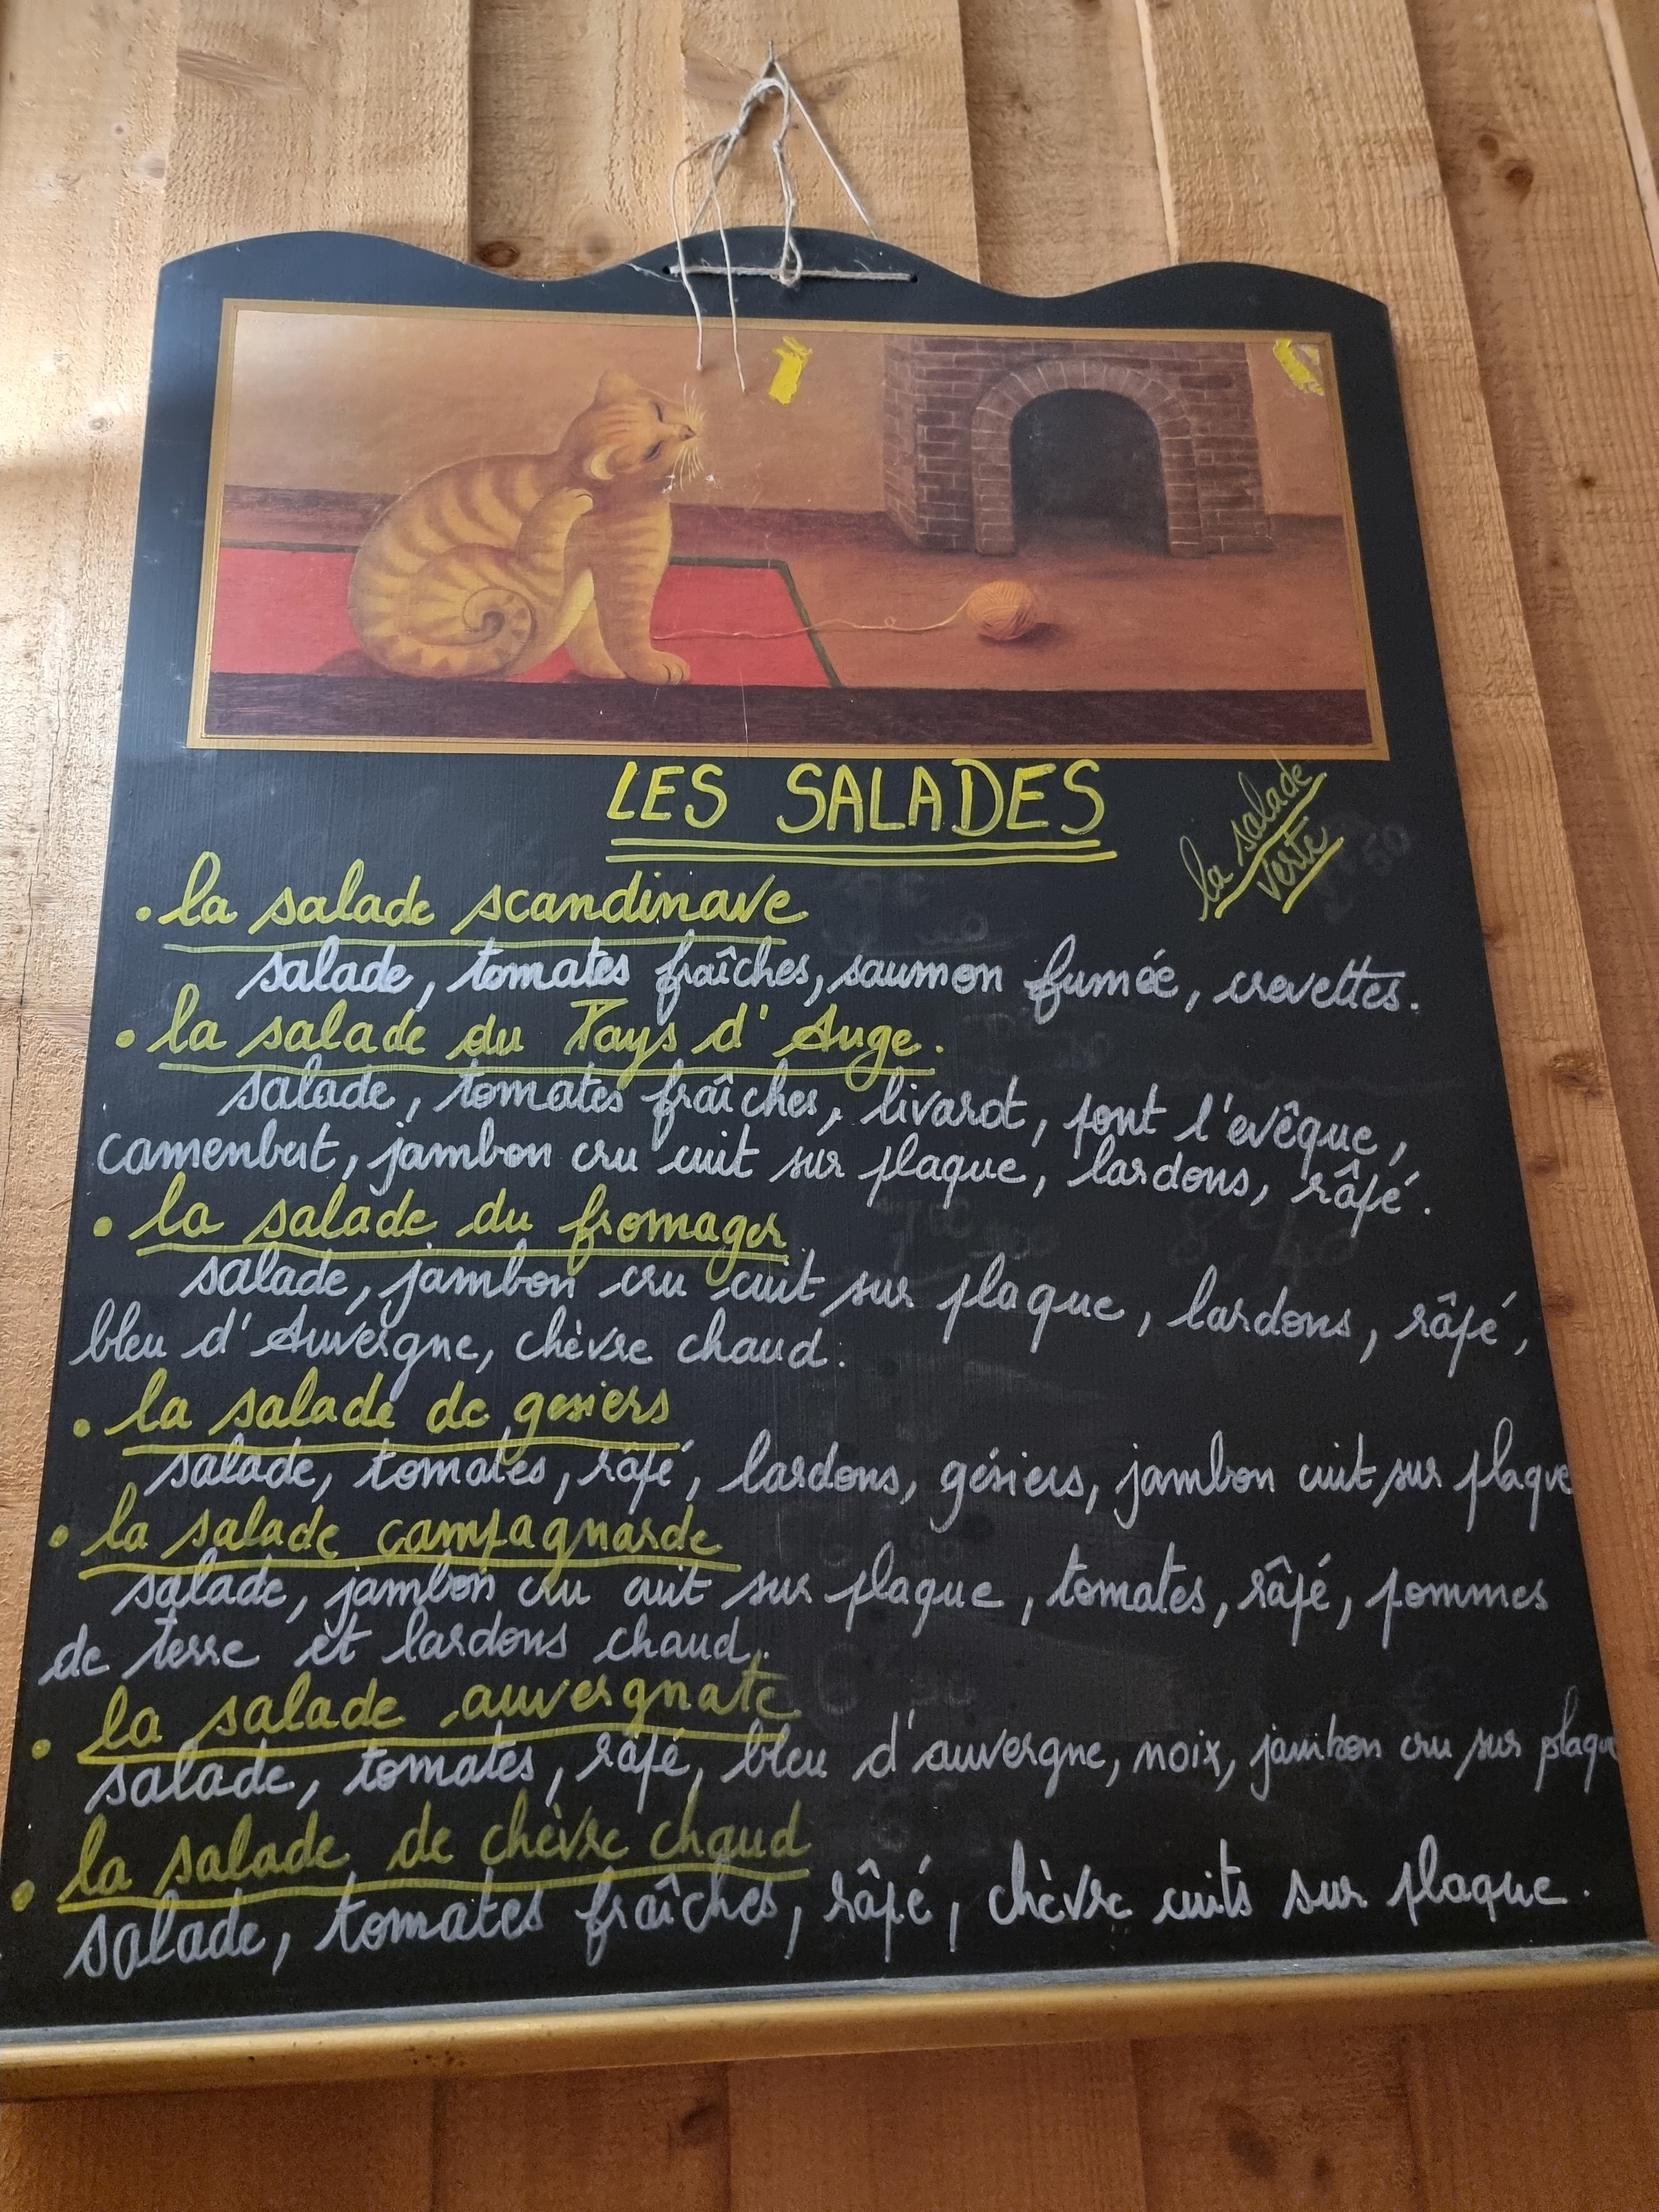 LES SALADES
la salade
verte
• la salade scandinave
salade, tomates fraîches, saumon fumée, crevettes.
• la salade du Pays d'Auge.
salade, tomates fraîches, livarot, pont l'evêque,
camenbert, jambon cru cuit sur plaque, lardons, râpé.
• la salade du fromager
salade, jambon cru cuit sur plaque, lardons, râpé,
bleu d'Auvergne, chèvre chaud.
• la salade de gesiers
salade, tomates, râpé, lardons, gésiers, jambon cuit sur plaque
• la salade campagnarde
salade, jambon cru cuit sur plaque, tomates, râpé, pommes
de terre et lardons chaud.
• la salade auvergnate
salade, tomates, râpé, bleu d'auvergne, noix, jambon cru sur plaqu
• la salade de chèvre chaud
salade, tomates fraîches, râpé, chèvre cuits sur plaque.